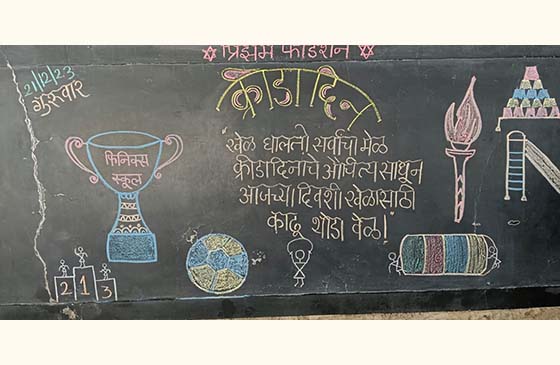 प्रिझम फाउंडेशन
21/12/23
गुरूवार
क्रीडा दिन
फिनिक्स
स्कूल
"खेळ घालतो सर्वांचा मेळ
क्रीडा दिनाचे औचित्य साधून
आजच्या दिवशी खेळासाठी
काढू थोडा वेळ!"
2 1 3